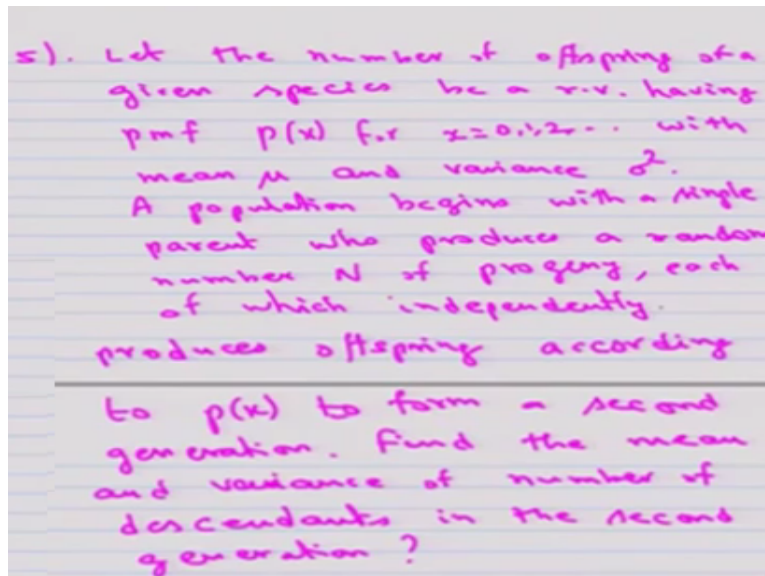 5). Let the number of offspring of a
given species be a r.v. having
pmf p(x) for x=0,1,2... with
mean μ and variance σ².
A population begins with a single
parent who produces a random
number N of progeny, each
of which independently.
produces offspring according
to p(x) to form a second
generation. Find the mean
and variance of number of
descendants in the second
generation?